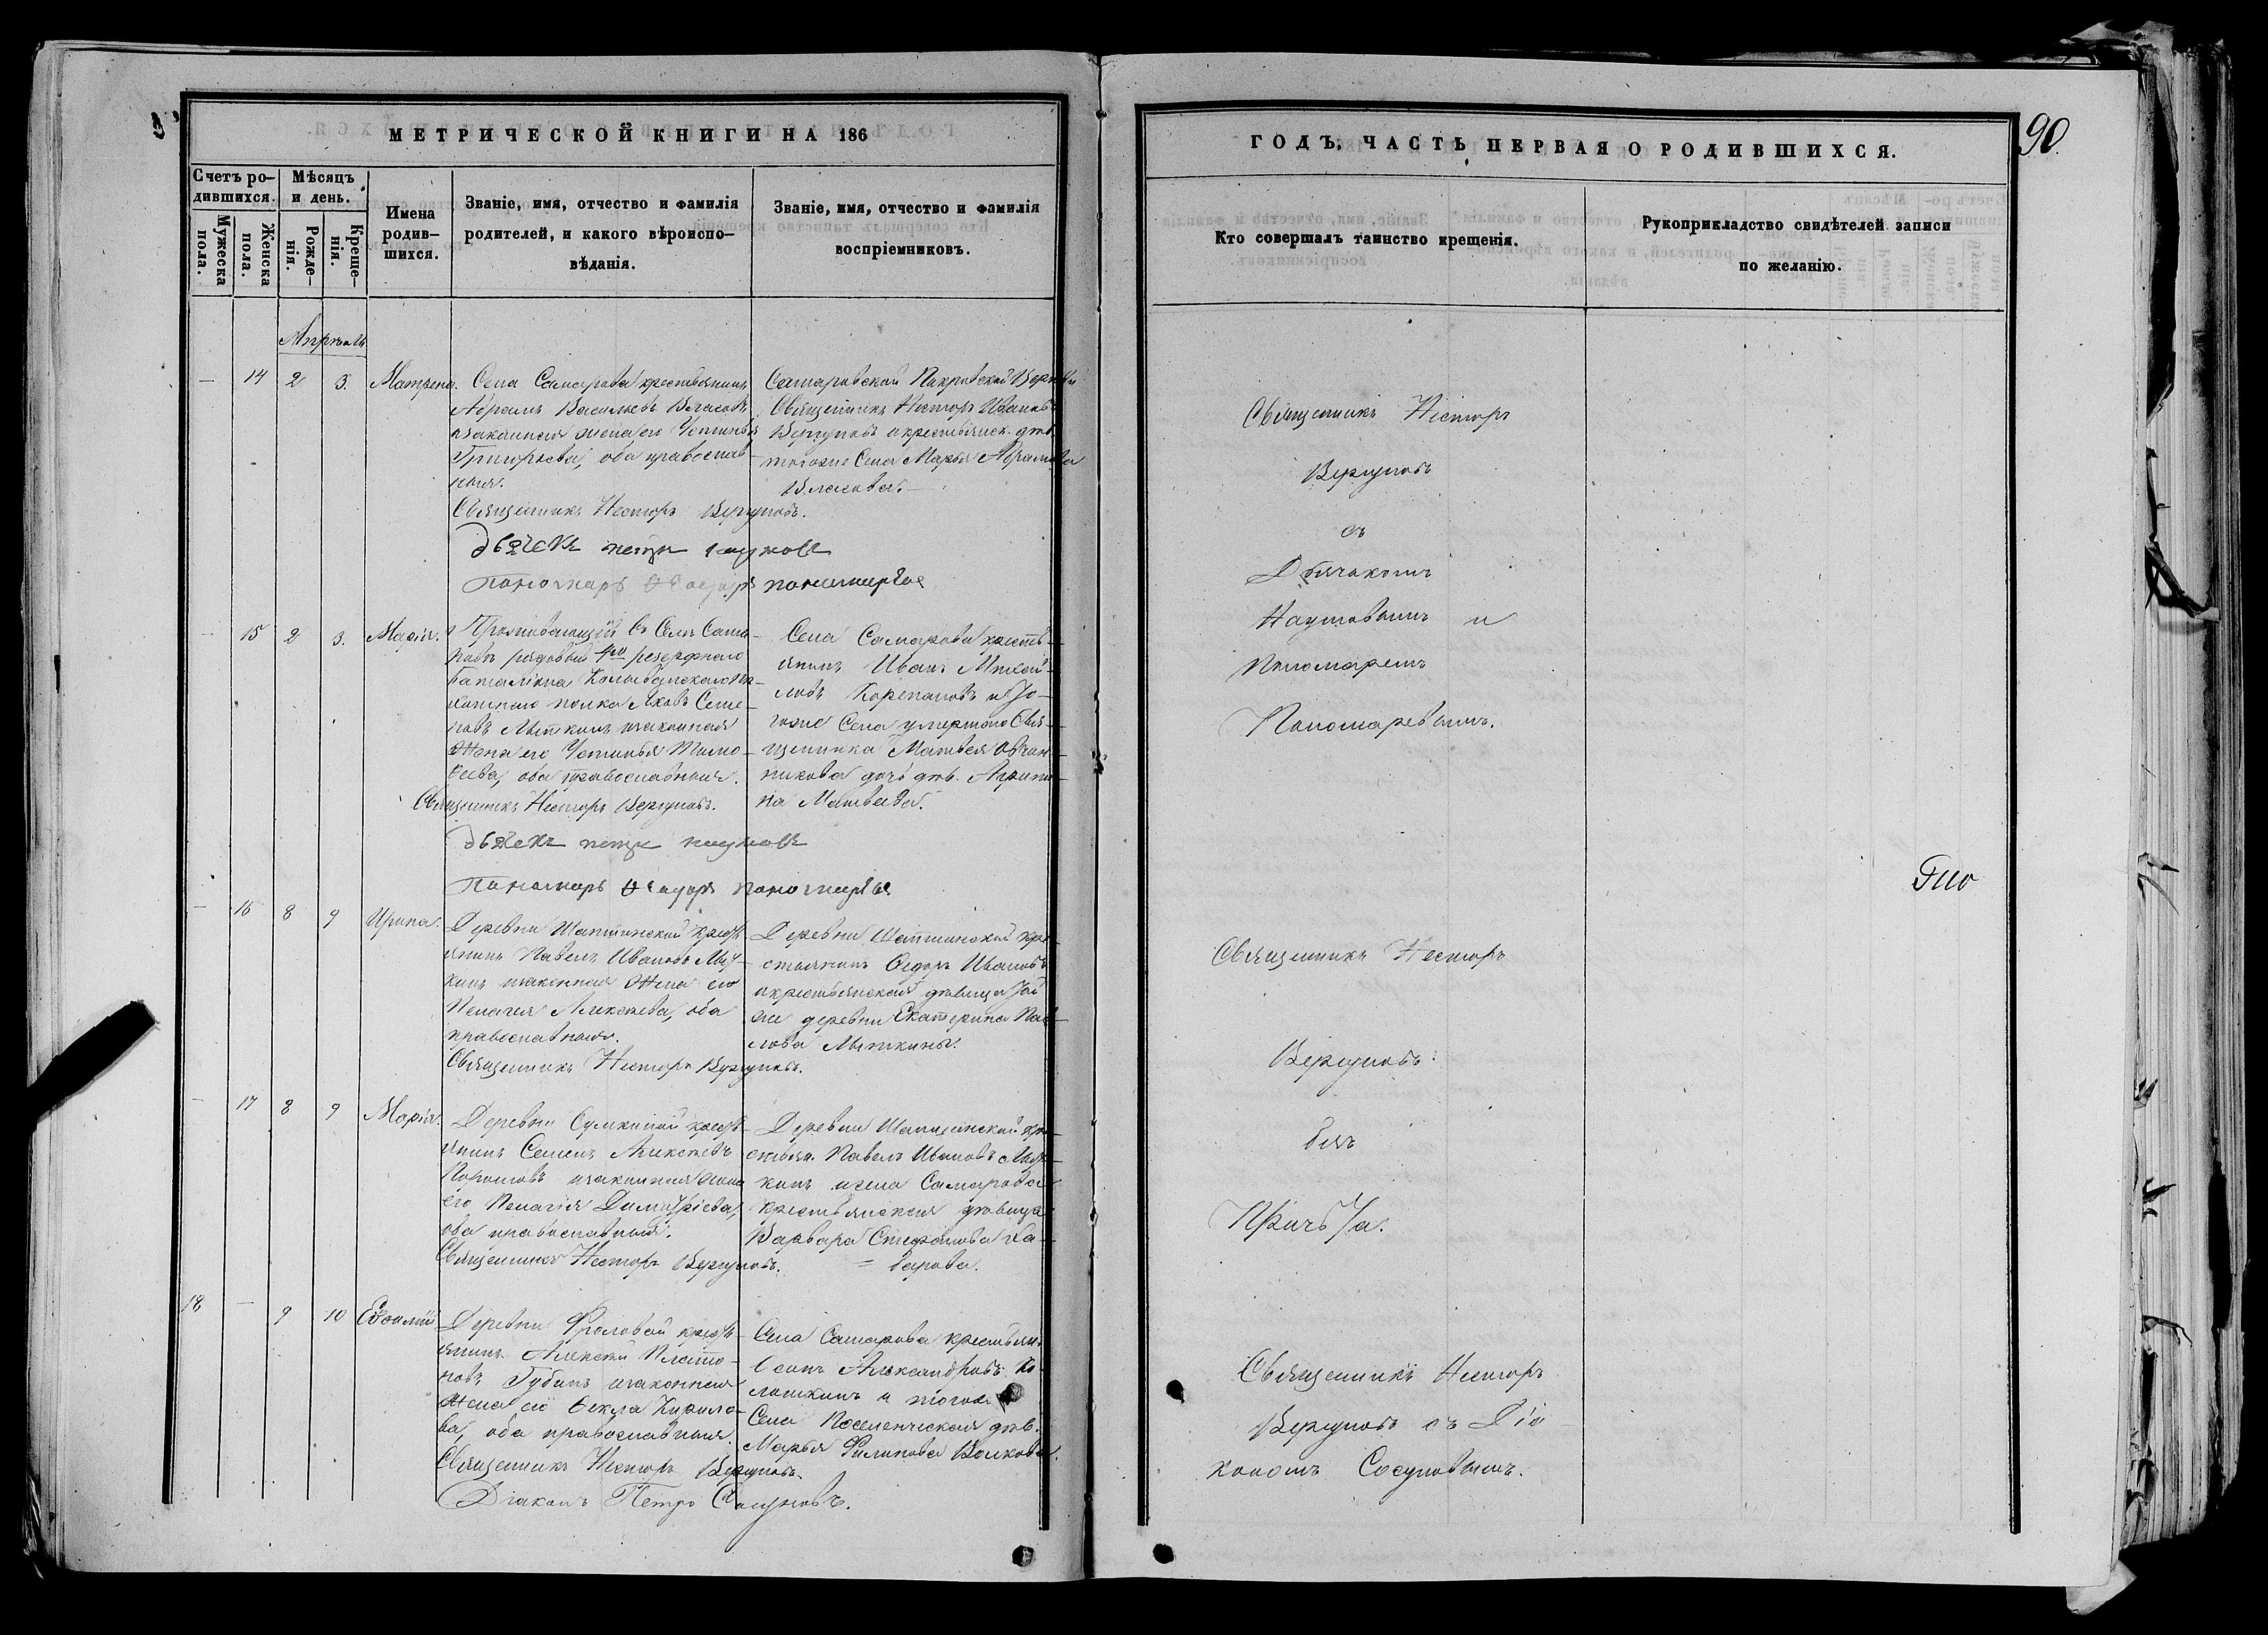 МЕТРИЧЕСКОЙ КНИГИ НА 186
Счетъ ро-
дившихся.
Мѣсяцъ
и день.
Мужеска
пола.
Женска
пола.
Рожде-
нія.
Креще-
нія.
Имена
родив-
шихся.
Званіе, имя, отчество и фамилія
родителей, и какого вѣроиспо-
вѣданія.
Званіе, имя, отчество и фамилія
воспріемниковъ.
Апрѣль
14 2 3. Матрена.
Села Самарова крестьянинъ
Абрамъ Васильевъ Власовъ
изаконная жена его Устинья
Григорьева, оба православ-
ныя.
Священникъ Несторъ Вергуновъ.
дьячекъ петръ
Пономарь Ѳеодоръ пономаревъ
Самаровской Покровской Церкви
Священникъ Несторъ Ивановъ
Вергуновъ икрестьянск. дѣв.
тогоже Села Марья Абрамова
Власова.
15 2 3. Марія.
Проживающій въ Селѣ Сама-
ровѣ рядовый 4го резервнаго
баталіона Колыванскаго пѣ-
хотнаго полка Яковъ Семе-
новъ Мыткинъ изаконная
жена его Устинья Тимо-
ѳеева, оба православныя.
Священникъ Несторъ Вергуновъ.
дьячекъ петръ наумовъ
Пономарь Ѳеодоръ пономаревъ
Села Самарова кресть-
янинъ Иванъ Михай-
ловъ Корепановъ и то-
гоже Села умершаго Свя-
щенника Матвея Овчин-
никова дочь дѣв. Агрипи-
на Матвеева.
16 8 9 Ирина.
Деревни Шапшинской крест-
янинъ Павелъ Ивановъ
изаконная жена его
Пелагея Алексеева, оба
православныя.
Священникъ Несторъ Вергуновъ.
Деревни Шапшинской кре-
стьянинъ Ѳедоръ Ивановъ
икрестьянская дѣвица той
же деревни Екатерина Пав-
лова Мыткины.
17 8 9 Марія.
Деревни Сумкиной крест-
янинъ Семенъ Алексѣевъ
изаконная жена
его Пелагія Димитріева,
оба православныя.
Священникъ Несторъ Вергуновъ.
Деревни Шапшинской кре-
стьян. Павелъ Ивановъ
кинъ исела Самарова
крестьянская дѣвица
Варвара Стефанова Ха-
барова.
18 9 10 Евѳимій
Деревни Фроловой крест-
янинъ Алексѣй Плато-
новъ Губинъ изаконная
жена его Ѳекла Кирило-
ва, оба православныя.
Священникъ Несторъ Вергуновъ.
Діаконъ Петръ Сосуновъ.
Села Самарова крестьян.
Осипъ Александровъ Ко-
лошкинъ и тогоже
Села Поселенческая дѣв.
Марья Филипова Волкова.
ГОДЪ, ЧАСТЬ ПЕРВАЯ О РОДИВШИХСЯ.
90.
Кто совершалъ таинство крещенія.
Рукоприкладство свидѣтелей записи
по желанію.
Священникъ Несторъ
Вергуновъ
съ
Дьячкомъ
Наумовымъ и
Пономаремъ
Пономаревымъ.
Священникъ Несторъ
Вергуновъ
безъ
Причта.
Священникъ Несторъ
Вергуновъ съ Діа-
кономъ Сосуновымъ.